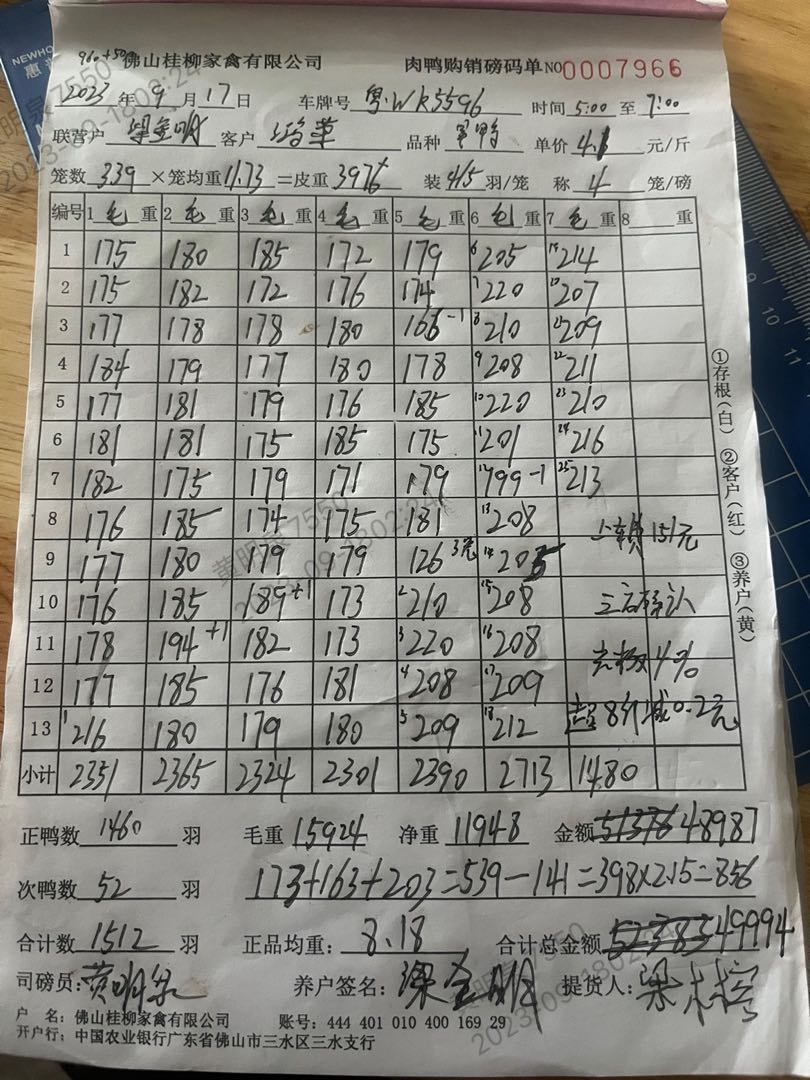 NEWHO
960+50
佛山桂柳家禽有限公司 肉鸭购销磅码单 NO 0007966
2023 年 9 月 17 日 车牌号 粤·WK5596 时间 5:00 至 7:00
联营户 梁金明 客户 品种 单价 4.1 元/斤
笼数 339 ×笼均重 11.73 =皮重 3976 装 4/5 羽/笼 称 4 笼/磅
编号 1 毛 重 2 毛 重 3 毛 重 4 毛 重 5 毛 重 6 毛 重 7 毛 重 8 重
1 175 180 185 172 179 6 205 19 214
2 175 182 172 176 174 7 220 20 207
3 177 178 178 180 166 -1 8 210 21 209
4 184 179 177 180 178 9 208 22 211
5 177 181 179 176 185 10 220 23 210
6 181 181 175 185 175 11 201 24 216
7 182 175 179 171 179 12 199 -1 25 213
8 176 185 174 175 181 13 208 上车费 151元
9 177 180 179 179 126 3笼 14 205
10 176 185 189 +1 173 2 210 15 208 三方确认
11 178 194 +1 182 173 3 220 16 208 4%
12 177 185 176 181 4 208 17 209
13 1 216 180 179 180 5 209 18 212 超8斤减0.2元
小计 2351 2365 2324 2301 2390 2713 1480
正鸭数 1460 羽 毛重 15924 净重 11948 金额 51376 48987
次鸭数 52 羽 173+163+203=539-141=398×2.15=856
合计数 1512 羽 正品均重: 8.18 合计总金额 52383 49994
司磅员: 黄明泉 养户签名: 梁金明 提货人: 梁
户 名: 佛山桂柳家禽有限公司 账号: 444 401 010 400 169 29
开户行: 中国农业银行广东省佛山市三水区三水支行
①存根(白) ②客户(红) ③养户(黄)
9 10 11
黄明泉 7550